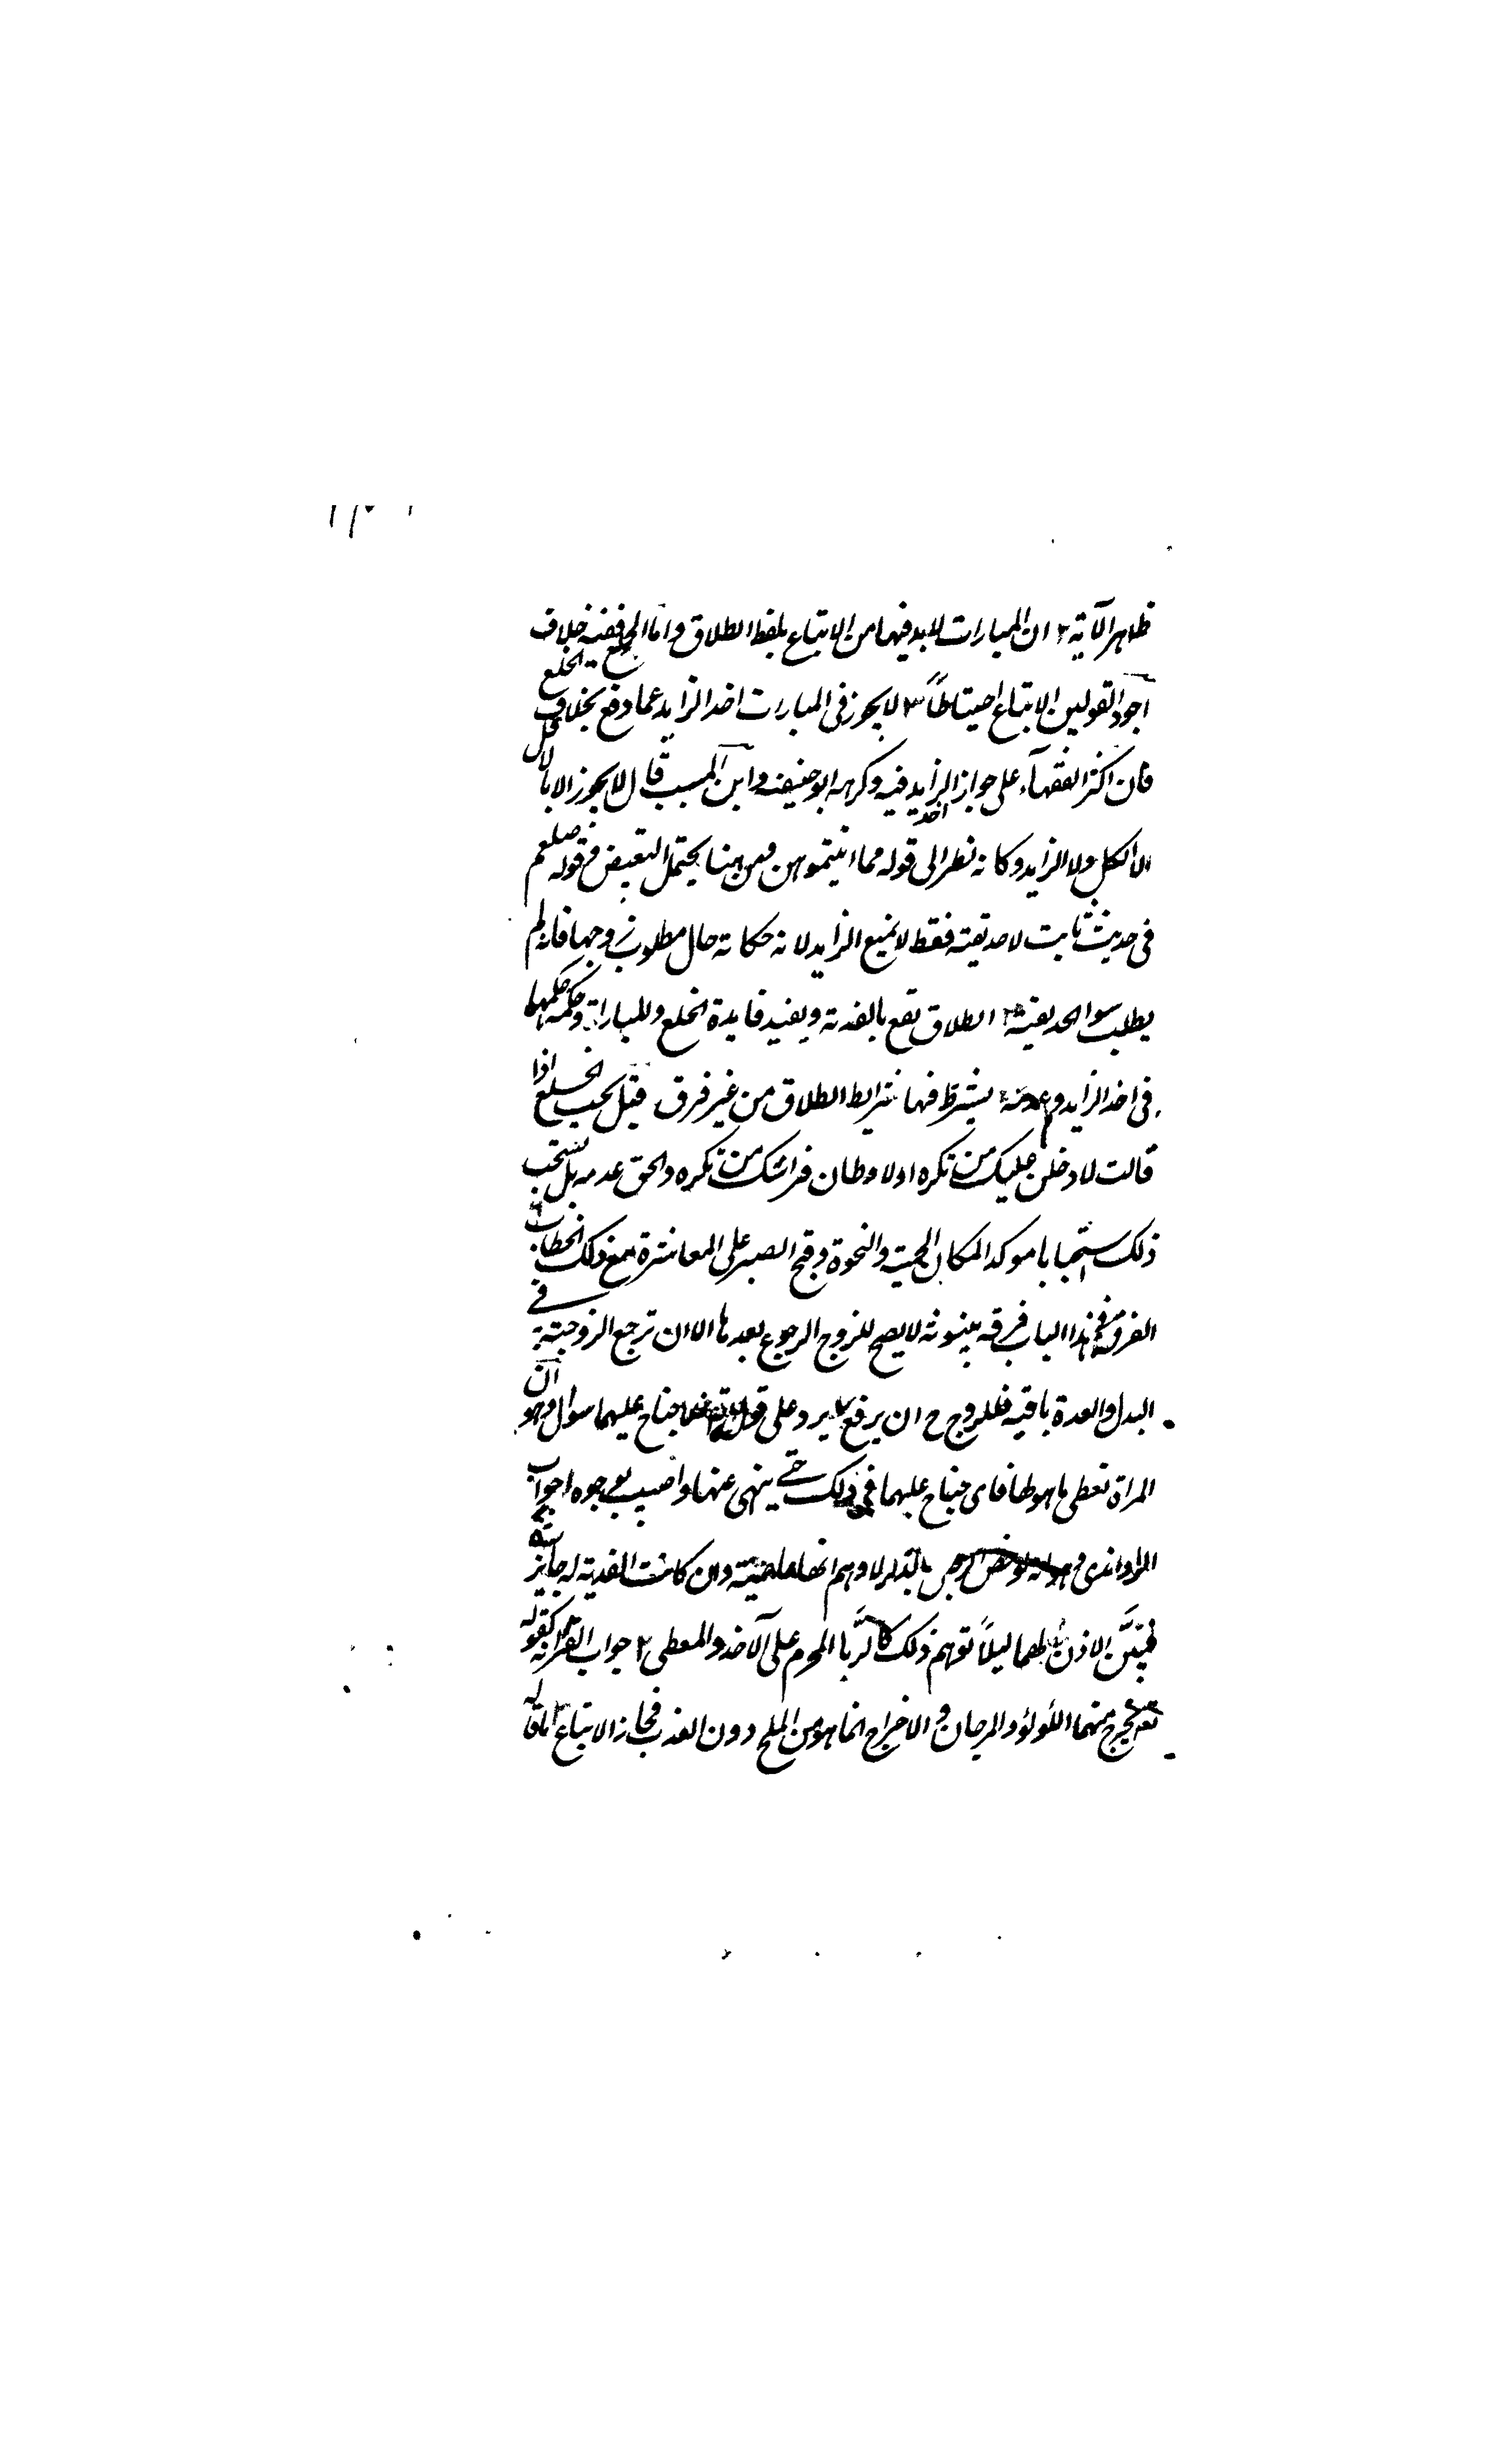 ظاهر الآية ٢ ان المبارات لابد فيها من الاتباع بلفظ الطلاق واما الخلع ففيه خلاف
اجود القولين الاتباع احتياطاً ٣ لا يجوز في المبارات اخذ الزايد عما دفع بخلاف الخلع
فان اكثر الفقهآء على جواز اخذ الزايد فيه وكرهه ابوحنيفه وابن المسيب قال لا يجوز الا بالاقل
لا الكل ولا الزايد وكانه نظر الى قوله مما اتيتموهن ومن هنا يحتمل التبعيض وقوله صلعم
في حديث ثابت لا حديقته فقط لا يمنع الزايد لانه حكاية حال مطلوب زوجها فانه لم
يطلب سوا الحديقة ٤ الطلاق يقع بالفدية ويفيد فايدة الخلع والمبارات وحكمه حكمهما
في اخذ الزايد وعدمه ٥ يشترط فيها شرايط الطلاق من غير فرق ٦ قيل يجب الخلع اذا
قالت لادخلن عليك من تكره او لاوطان فراشك من تكره والحق عدمه بل يستحب
ذلك استحبابا موكدا لمكان الحمية والنخوة وقبح الصبر على المعاشرة مع ذلك الخطاب
الفرقة في هذا الباب فرقه بينونة لا يصح للزوج الرجوع بعدها الا ان ترجع الزوجية في
البدل والعدة باقيه فللزوج ح ان يرفع يرد على قوله تع فلا جناح عليهما سوال وهو ان
المراة تعطى ما هو لها فاى جناح عليهما في ذلك حتى ينهى عنها واجيب بوجوه ا جواب
الراوندى بالذكر لاوهم انها عاصية وان كانت الفدية له جايزة
فبيّن الاذن لهما ليلاً توهم ذلك كالرّبا المحرم على الآخذ والمعطى ٢ جواب الفرّا انه كقوله
تع يخرج منهما اللؤلؤ والمرجان و الاخراج انما هو من الملح دون العذب فجاز الاتباع ٣ ما قاله